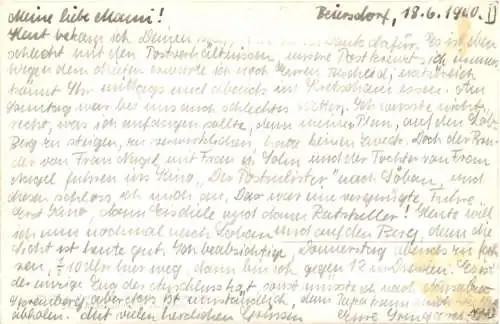 Meine liebe Mammi! Beiersdorf, 18.6.1940.
Heut bekam ich Deinen dafür. Es ist eben
schlecht mit den Postverhältnissen, unsere Postkarten
wegen dem ich noch natürlich
könnt Ihr mittags und abends im Kretscham essen. Am
Sonntag war bei uns auch schlechtes Wetter. Ich wusste nicht
recht, was ich anfangen sollte, denn meinen Plan, auf den Löb.
Berg zu steigen, zu verwirklichen, hatte keinen Zweck. Doch der Bru-
der von Frau Nagel mit Frau u. Sohn und der Tochter von Frau
Nagel fuhren ins Kino, "Der Postmeister" nach Löbau, und
diesen schloss ich mich an. Das war eine vergnügte Fuhre.
Erst Kino, dann Eisdiele und dann Ratskeller! Heute will
ich nun nochmal nach Löbau und auf den Berg, denn die
Sicht ist heute gut. Ich beabsichtige, Donnerstag abends zu fah-
ren, 10 Uhr hier weg, dann bin ich gegen 12 in Dresden. Es ist
der einzige Zug der Anschluss hat, sonst müsste ich nach
aber das ist umständlich, denn Papa kann mich
abholen. Mit vielen herzlichen Grüssen Eure